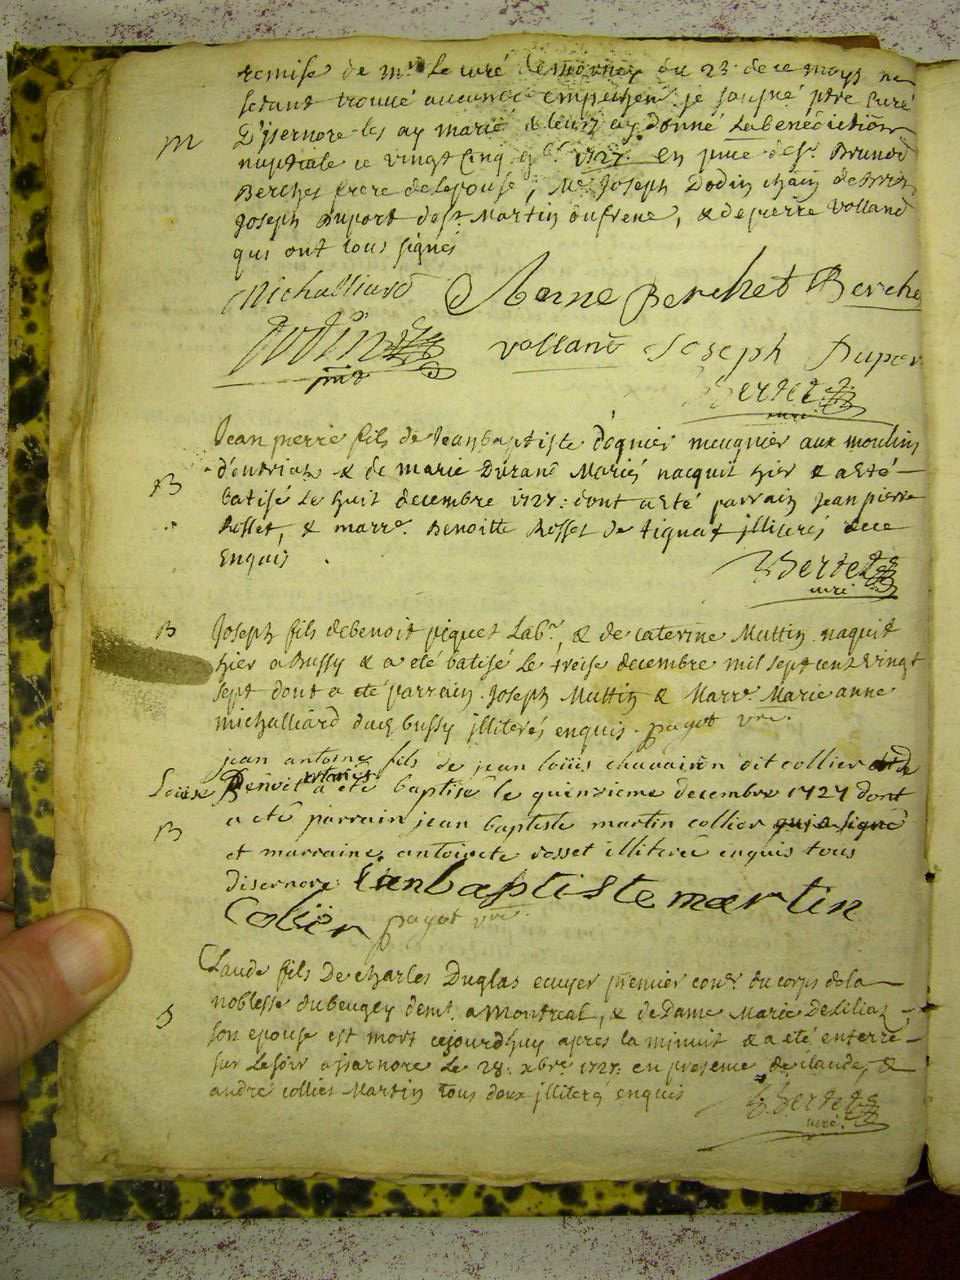 remise de mr le curé de mornay du 23 de ce mays ne
sestant trouvé aucuns empeschem. je soussigné ptre curé
M
D'isernore les ay marié & leurs ay donné la benediction
nuptiale ce vingt cinq 9bre 1727. en pnce de sr. Brunod
Berchet frere de lepouse, Me Joseph Dodin
Joseph Duport de st Martin du frene, & de pierre volland
qui ont tous signés
Michalliard Anne Berchet Berchet
Dodin volland Joseph Dupor
Bertet
curé
Jean pierre fils de Jean baptiste dognier meugnier aux moulins
d'outriaz & de marie Durand Mariés nacquit hier & a esté
B
batisé le huit decembre 1727: dont a esté parrain Jean pierre
Rosset, & marre. Benoitte Rosset de tignat illiterés de ce
Enquis
Bertet
curé
B
Joseph fils de benoit piquet Labr. & de caterine Muttin naquit
hier a Bussy & a eté batisé le treise decembre mil sept cent vingt
sept dont a eté parrain Joseph Muttin & Marre Marie anne
michalliard dud bussy illiterés enquis. payot vre.
jean antoine fils de jean loüis chavairon dit collier et de
Benoit a eté baptisé le quinzieme decembre 1727 dont
B
a eté parrain jean baptiste martin collier qui a signé
et marraine antoinete rosset illiterée enquis tous
disernore. Jean baptiste martin
Colier payot vre.
Claude fils De charles Duglas ecuyer premier du corps de la
noblesse du beugey demt. a Montreal, & de Dame Marie De Liliaz
S
son epouse est mort cejourdhuy apres la minuit & a eté enterré
sur le soir a isarnore le 28: xbre 1727: en presence de claude, &
andré collier Martin tous deux illiterés enquis
Bertet
curé.